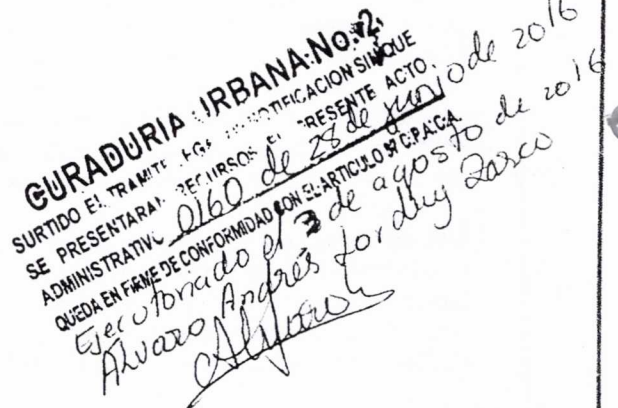 CURADURIA URBANA No. 2
SURTIDO EL TRAMITE LEGAL NOTIFICACION SIN QUE
SE PRESENTARAN RECURSOS EL PRESENTE ACTO
ADMINISTRATIVO 0160 de 28 de junio de 2016
QUEDA EN FIRME DE CONFORMIDAD CON EL ARTICULO C.P.A.C.A.
Ejecutoriado el 3 de agosto de 2016
Alvaro Andrés